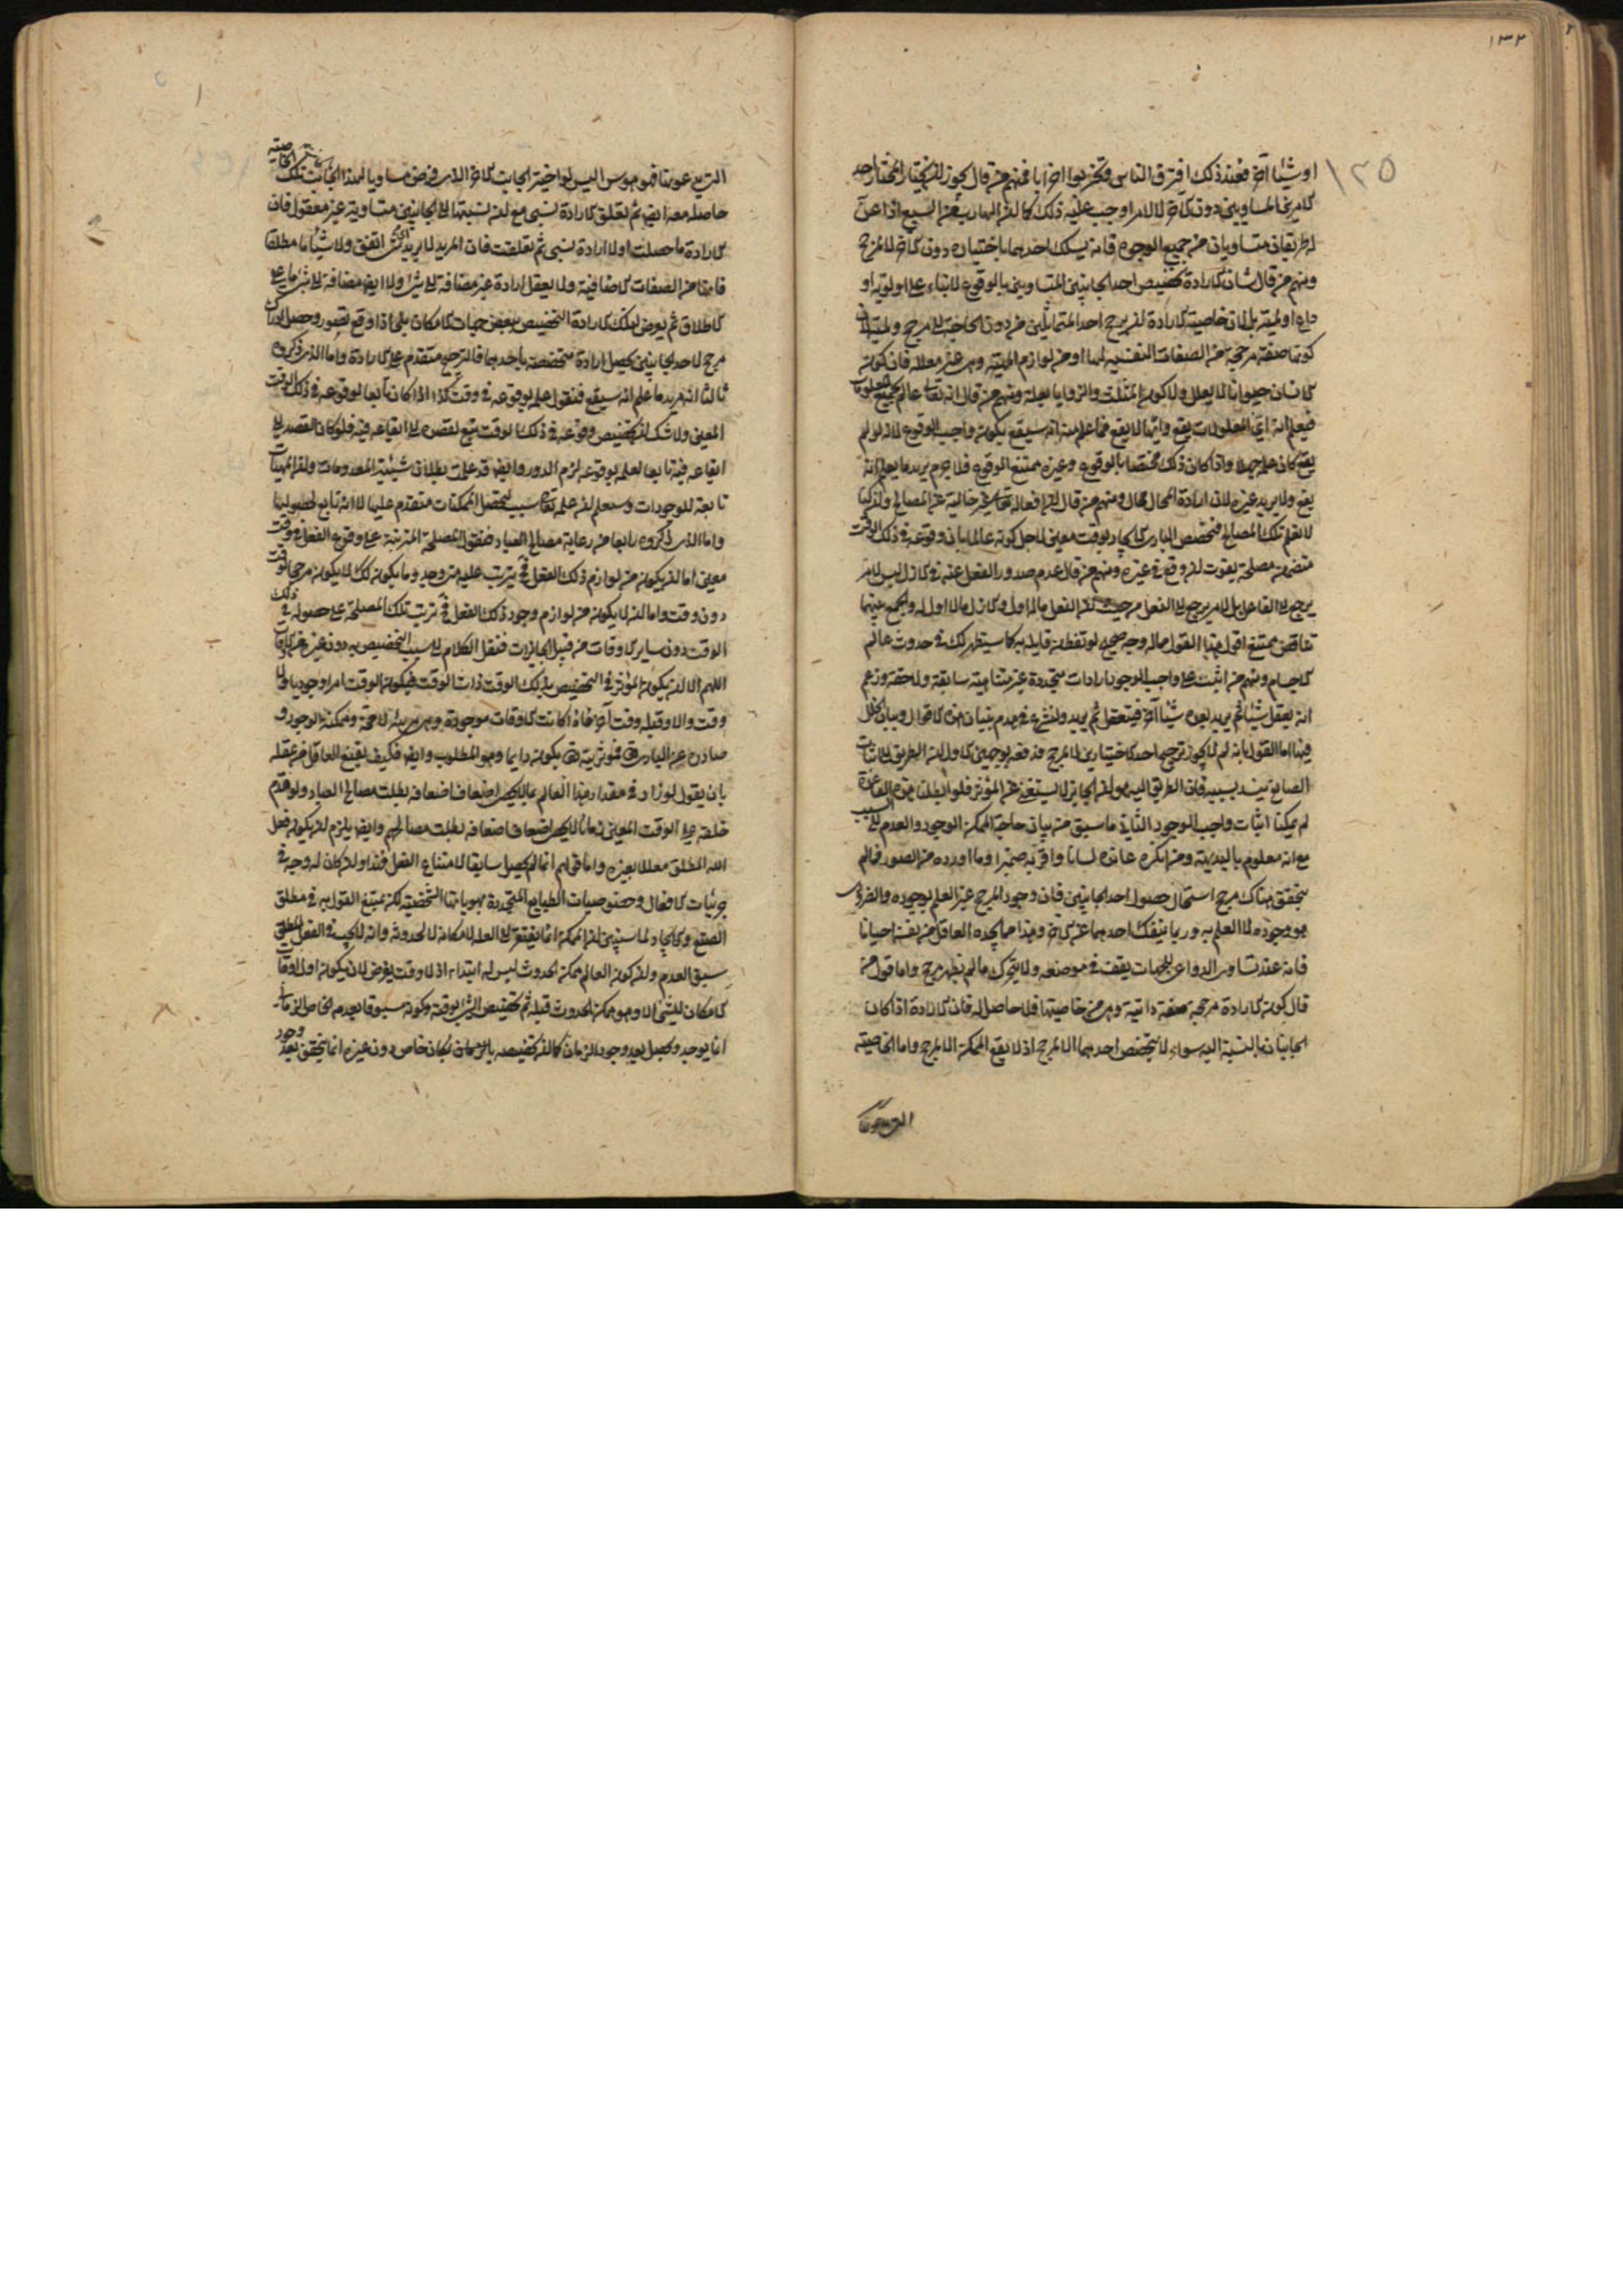 ١٣٢
١٢٥
او شيئا آخر فعند ذلك افترق الناس وتحزبوا احزابا فمنهم من قال يجوز ان يختار المختار احد
الامرين المتساويين دون الآخر لا لامر اوجب عليه ذلك كما ان الهارب من السبع اذا عنّ
له طريقان متساويان من جميع الوجوه فانه يسلك احدهما باختياره دون الآخر لا لمرجح
ومنهم من قال شان الارادة تخصيص احد الجانبين المتساويين بالوقوع لا بناء على اولوية او
اولية بل لان خاصية الارادة ان يرجح احد المتماثلين من دون الحاجة الى مرجح
كونها صفة مرجحة من الصفات النفسية لها او من لوازم الماهية وهي غير معللة فان كون
الانسان حيوانا لا يعلل ولا كون المثلث ذا الزوايا بعلة ومنهم من قال انه تعالى عالم بجميع المعلومات
فيعلم انه اى المعلولات يقع وايها لا يقع فما علم منه انه سيقع يكون واجب الوقوع لانه لو لم
يقع كان علمه جهلا واذا كان ذلك مختصا بالوقوع وغيره ممتنع الوقوع فلا جرم يريد ما يعلم انه
يقع ولا يريد غيره لان ارادة المحال محال ومنهم من قال ان افعاله تعالى غير خالية عن المصالح وان كنا
لا نعلم تلك المصالح فتخصص البارى الايجاد بوقت معين لاجل كونه عالما بان وقوعه فى ذلك الوقت
متضمن مصلحة يفوت لو وقع فى غيره ومنهم من قال عدم صدور الفعل عنه فى الازل ليس لامر
يرجع الى الفاعل بل لامر يرجع الى الفعل من حيث ان الفعل ماله اول والازل ما لا اول له والجمع بينهما
تناقض ممتنع اقول هذا القول مما له وجه صحيح لو تفطن قايله به كما سيظهر لك فى حدوث عالم
الاجسام ومنهم من اثبت على واجب الوجود ارادات متجددة غير متناهية سابقة ولاحقة وزعم
انه يفعل شيئا ثم يريد بعده شيئا آخر فيفعل ثم يريد ولنشرع فى هدم بنيان هذه الاقوال وبيان الخلل
فيها اما القول بانه لم لا يجوز ترجيح احد الاختيارين لا لمرجح فدفعه بوجهين الاول ان الطريق الى اثبات
الصانع ينسد بسببه فان الطريق اليه هو ان الجايز لا يستغنى عن المؤثر فلو ابطلنا هذه القاعدة
لم يمكنا اثبات واجب الوجود الثانى ما سبق من بيان حاجة الممكن الوجود والعدم الى السبب
مع انه معلوم بالبديهة ومن انكره عانده لسانا واقر به ضميرا وما اورده من الصور فما لم
يتحقق هناك مرجح استحال حصول احد الجانبين فان وجود المرجح غير العلم بوجوده والضرورى
هو وجوده لا العلم به وربما ينفك احدهما عن الآخر وهذا مما يجده العاقل من نفسه احيانا
فانه عند تساوى الدواعى للجهات يقف فى موضعه ولا يتحرك ما لم يظهر مرجح واما قول من
قال كون الارادة مرجحة صفة ذاتية وهى من خاصيتها فلا حاصل له فان الارادة اذا كان
الجانبان بالنسبة اليه سواء لا يتخصص احدهما الا لمرجح اذ لا يقع الممكن الا بمرجح واما الخاصية
التى يدعونها
التى يدعونها فهو هوس اليس لو اختير الجانب الآخر الذى فرض مساويا لهذا الجانب تلك الخاصية
حاصلة معه ايضا ثم تعلق الارادة لشىء مع ان نسبتها الى الجانبين متساوية غير معقول فان
الارادة ما حصلت اولا ارادة لشىء ثم تعلقت فان المريد لا يريد اى شىء اتفق ولا شيئا ما مطلقا
فانها من الصفات الاضافية ولا يعقل ارادة غير مضافة الى شىء ولا ايضا مضافة الى شىء ما على
الاطلاق ثم يعرض لتلك الارادة التخصيص ببعض جهات الامكان بلى اذا وقع تصور وحصل ادراك
مرجح لاحد الجانبين يحصل ارادة متخصصة باحدهما فالترجيح متقدم على الارادة واما الذى ذكروه
ثالثا انه مريد ما علم انه سيقع فنقول علمه بوقوعه فى وقت كذا اذا كان تابعا لوقوعه فى ذلك الوقت
المعين ولا شك ان تخصيص وقوعه فى ذلك الوقت يتبع لقصده الى ايقاعه فيه فلو كان القصد الى
ايقاعه فيه تابعا لعلمه بوقوعه لزم الدور وايضا قد علمت بطلان شيئية المعدومات وان الماهيات
تابعة للوجودات وستعلم ان علمه تعالى سبب لتحصل الممكنات متقدم عليها لا انه تابع لحصولها
واما الذى ذكروه رابعا من رعاية مصالح العباد فنقول المصلحة المترتبة على وقوع الفعل فى وقت
معين اما ان يكون من لوازم ذلك الفعل فهى يترتب عليه متى وجد وما يكون كذلك لا يكون مرجحا لوقت
دون وقت واما ان لا يكون من لوازم وجود ذلك الفعل فترتب تلك المصلحة على حصوله فى ذلك
الوقت دون ساير الاوقات من قبيل الجايزات فننقل الكلام الى سبب التخصيص به دون غيره من الاوقات
اللهم الا ان يكون المؤثر فى التخصيص بذلك الوقت ذات الوقت فيكون الوقت امرا وجوديا ولا
وقت والا وقبله وقت آخر فاذا كانت الاوقات موجودة وهى مرتبة لا محة وممكنة الوجود و
صادرة عن البارى تعالى فمؤثريته تعالى يكون دايما وهو المطلوب وايضا فكيف يقنع العاقل من عقله
بان يقول لو زاد فى مقدار هذا العالم بما لا يحصى اضعاف اضعافه بطلت مصالح العباد ولو قدم
خلقه على الوقت المعين زمانا لا يحصى اضعاف اضعافه بطلت مصالحهم وايضا يلزم ان يكون فعل
الله المطلق معللا بغيره واما قولهم انما لم يحصل سابقا لامتناع الفعل فهذا وان كان له وجه فى
جزئيات الافعال وخصوصيات الطبايع المتجددة بهوياتها الشخصية لكن يمتنع القول به فى مطلق
الصنع والايجاد لما سيتبين ان الممكن انما يفتقر الى العلة لامكانه لا لحدوثه وانه لا يجب فى الفعل المطلق
سبق العدم وان كون العالم ممكن الحدوث ليس له ابتداء اذ لا وقت يفرض لان يكون اول اوقات
امكان الشىء الا وهو ممكن الحدوث قبله ثم تخصيص الشىء بوقته وكونه مسبوقا بعدم خاص زمانى
انما يوجد ويحصل بعد وجود الزمان كما ان تخصيصه بمكان خاص دون غيره انما يتحقق بعد وجود